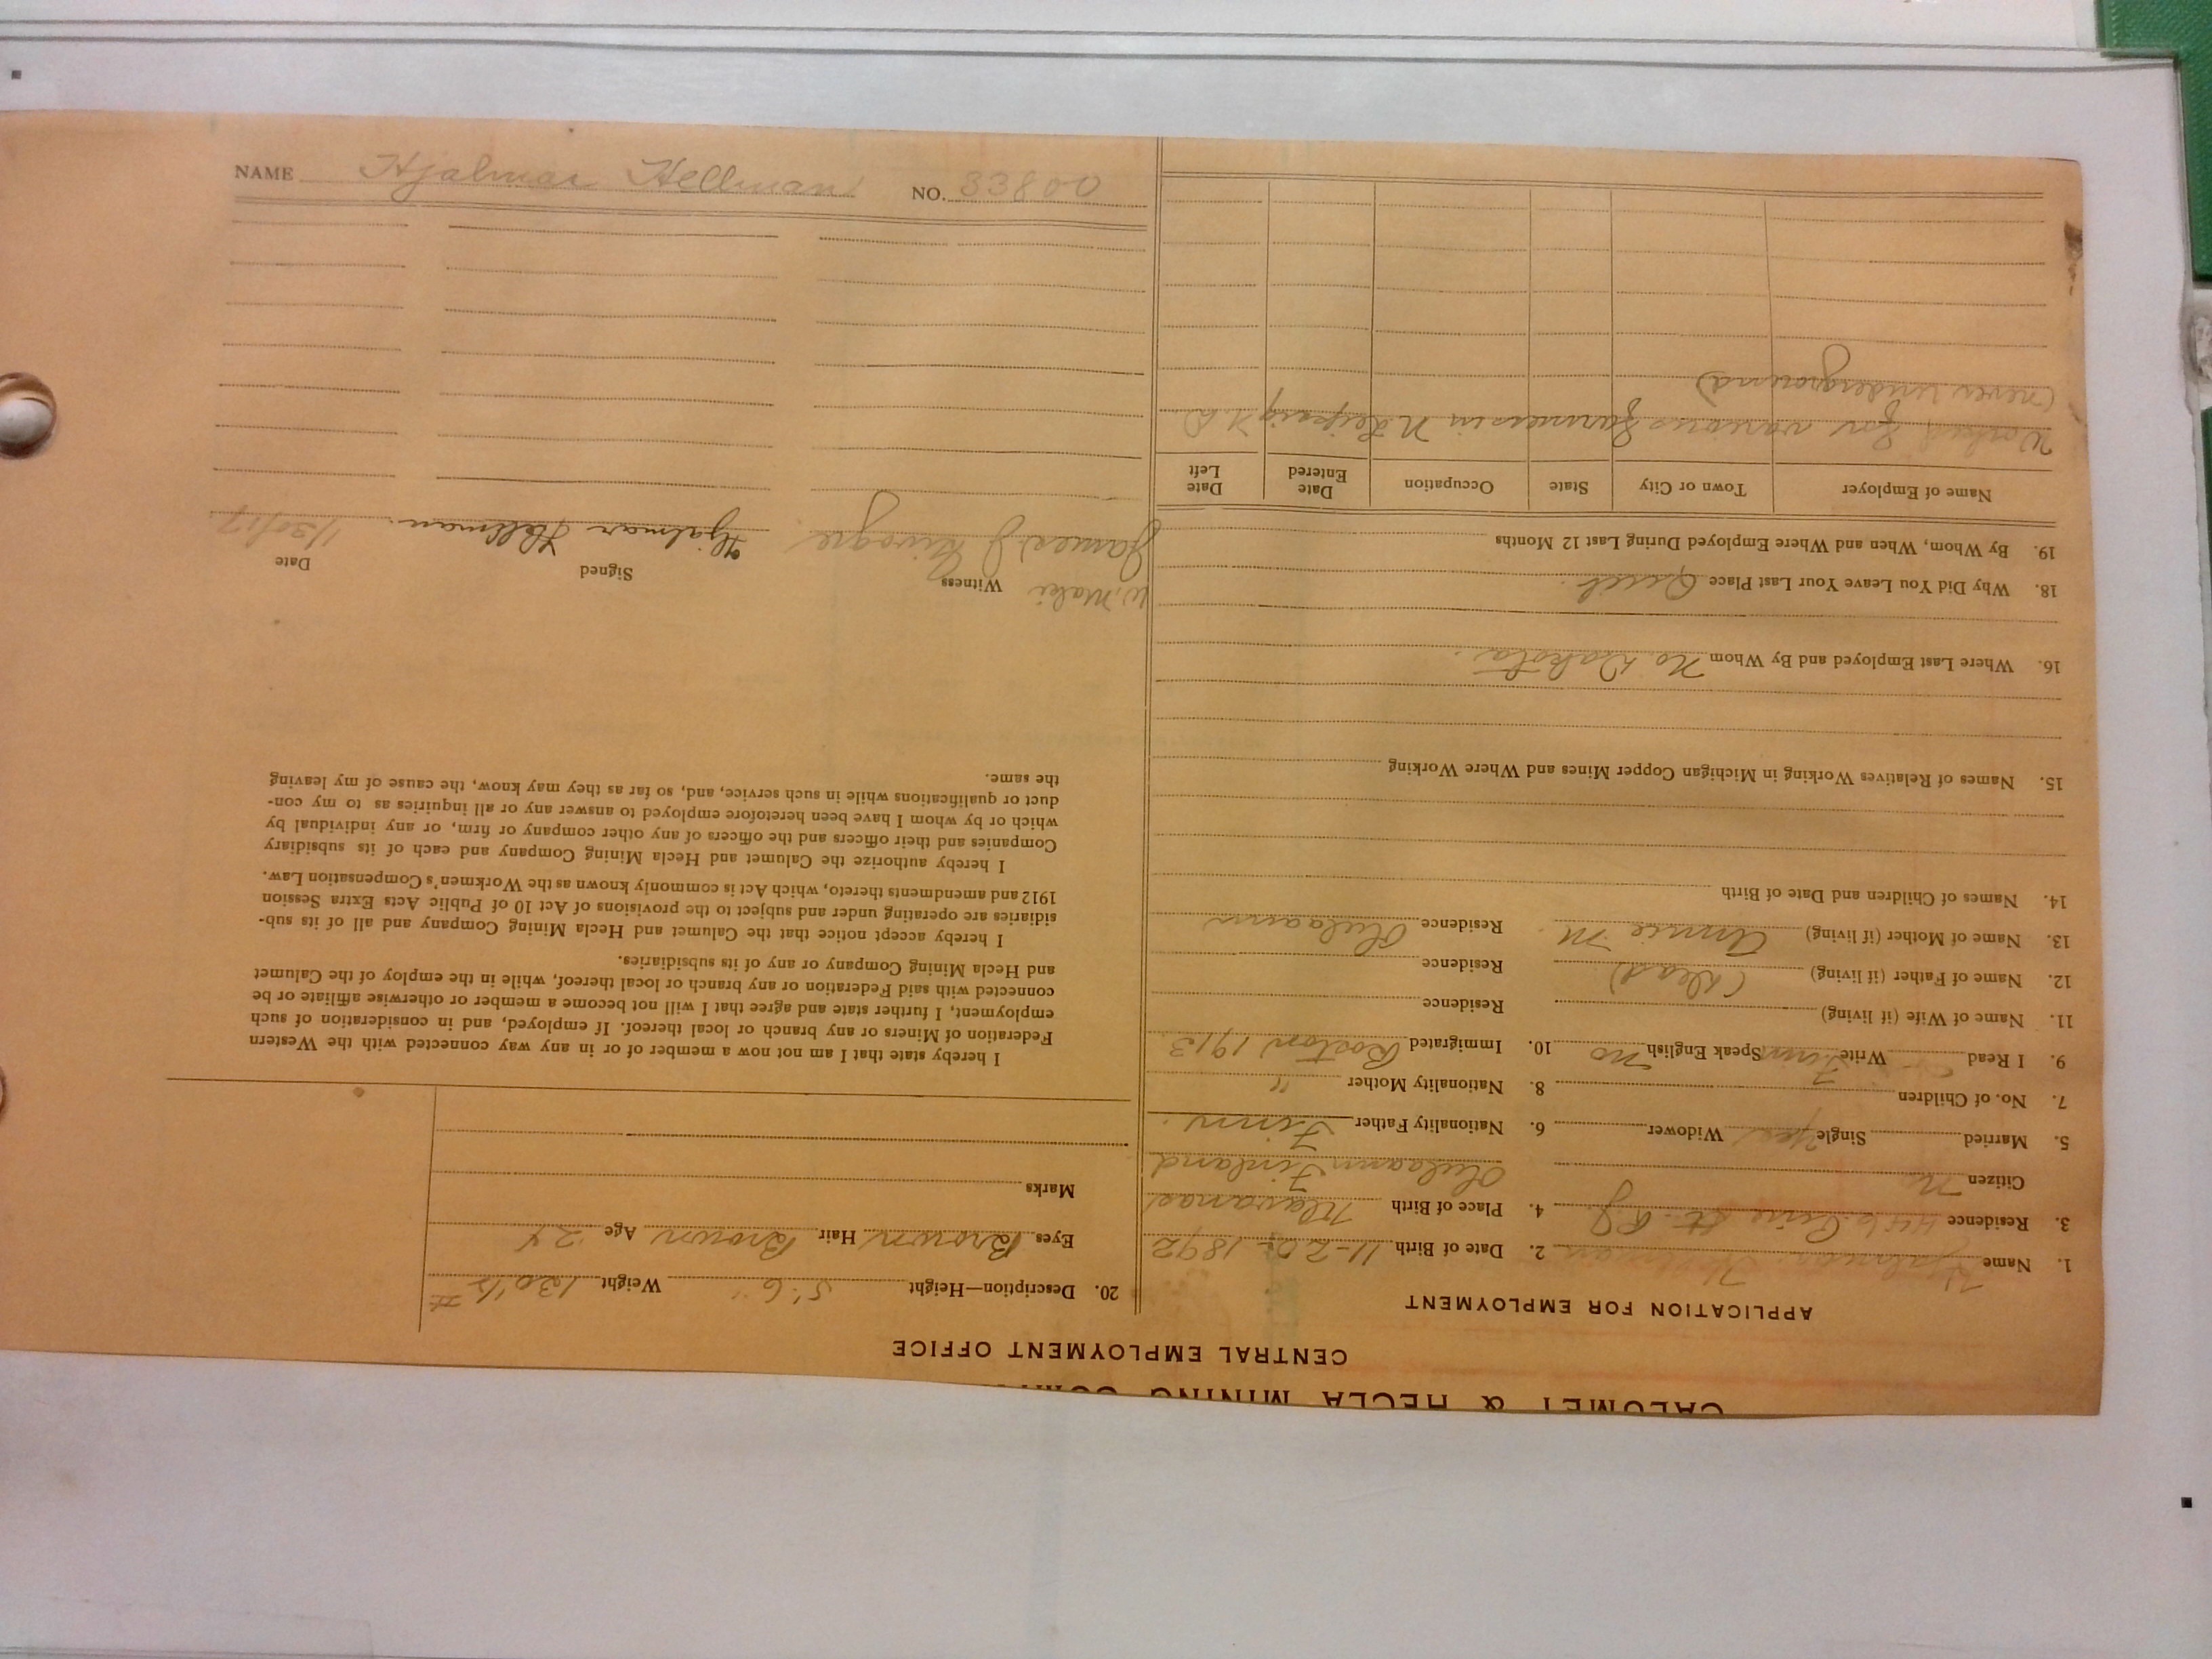 CALUMET & HECLA MINING
CENTRAL EMPLOYMENT OFFICE
APPLICATION FOR EMPLOYMENT
1. Name Hjalmar Hellman
2. Date of Birth 11-20- 1892
3. Residence 446 Pine St.
4. Place of Birth
Citizen No
Finland
5. Married Single yes Widower
6. Nationality Father Finn.
7. No. of Children
8. Nationality Mother "
9. I Read Write Finn Speak English no
10. Immigrated Boston 1913
11. Name of Wife (if living) Residence
12. Name of Father (if living) (Dead) Residence
13. Name of Mother (if living) Annie M. Residence
14. Names of Children and Date of Birth
15. Names of Relatives Working in Michigan Copper Mines and Where Working
16. Where Last Employed and By Whom No. Dakota.
18. Why Did You Leave Your Last Place Quit.
19. By Whom, When and Where Employed During Last 12 Months
Name of Employer Town or City State Occupation Date Entered Date Left
Worked for various farmers in N. Leipzig N.D.
(never underground)
20. Description—Height 5' 6" Weight 130 1/2 #
Eyes Brown Hair Brown Age 24
Marks
I hereby state that I am not now a member of or in any way connected with the Western
Federation of Miners or any branch or local thereof. If employed, and in consideration of such
employment, I further state and agree that I will not become a member or otherwise affiliate or be
connected with said Federation or any branch or local thereof, while in the employ of the Calumet
and Hecla Mining Company or any of its subsidiaries.
I hereby accept notice that the Calumet and Hecla Mining Company and all of its sub-
sidiaries are operating under and subject to the provisions of Act 10 of Public Acts Extra Session
1912 and amendments thereto, which Act is commonly known as the Workmen's Compensation Law.
I hereby authorize the Calumet and Hecla Mining Company and each of its subsidiary
Companies and their officers and the officers of any other company or firm, or any individual by
which or by whom I have been heretofore employed to answer any or all inquiries as to my con-
duct or qualifications while in such service, and, so far as they may know, the cause of my leaving
the same.
W. Maki Witness Signed Date
James J Hjalmar Hellman. 1/30/17.
NAME Hjalmar Hellman NO. 33800